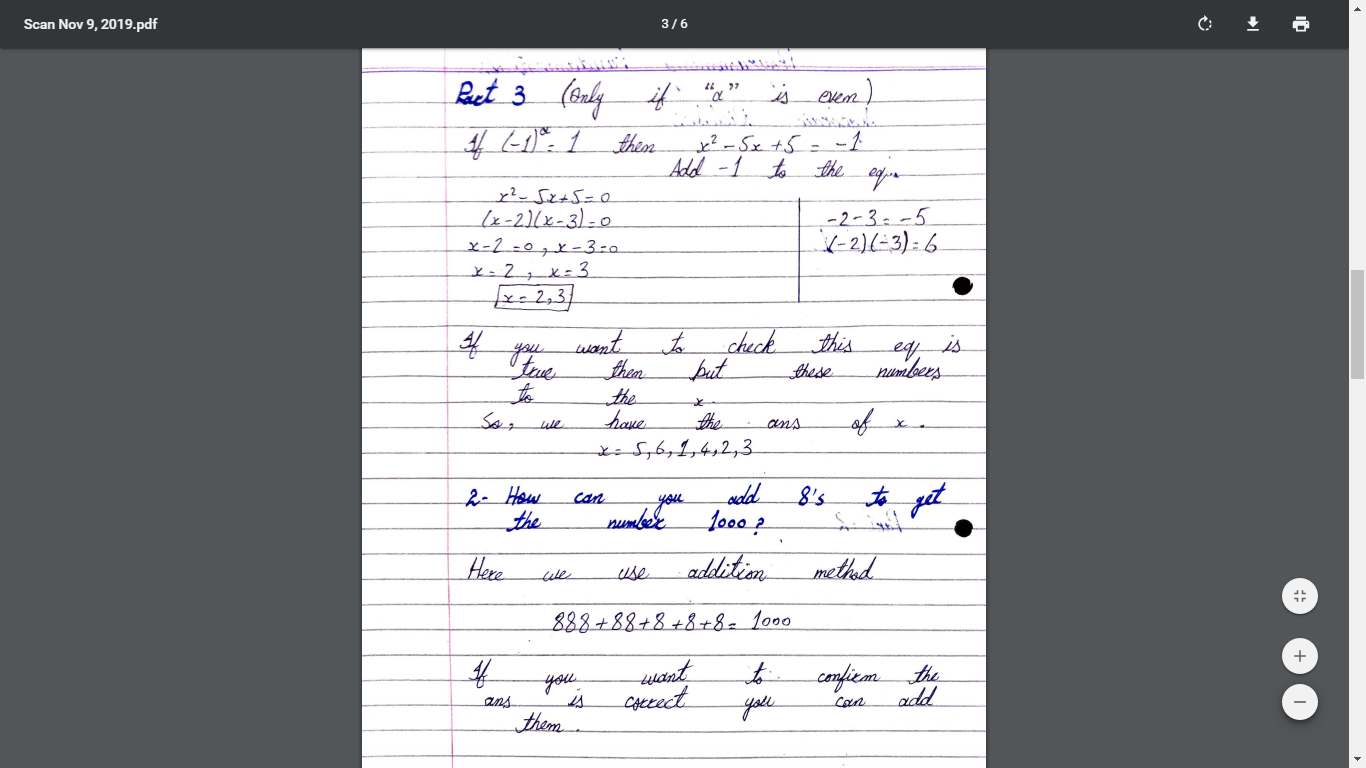 Scan Nov 9, 2019.pdf
3 / 6
Part 3 (Only if "a" is even)
If (-1)ᵅ = 1 then x² - 5x + 5 = -1
Add -1 to the eq.
x² - 5x + 5 = 0
(x-2)(x-3) = 0
x-2 = 0 , x-3 = 0
x = 2 , x = 3
x = 2,3
-2-3 = -5
(-2)(-3) = 6
If you want to check this eq is
true then but these numbers
to the x.
So, we have the ans of x.
x = 5,6,1,4,2,3
2- How can you add 8's to get
the number 1000?
Here we use addition method
888+88+8+8+8 = 1000
If you want to confirm the
ans is correct you can add
them.